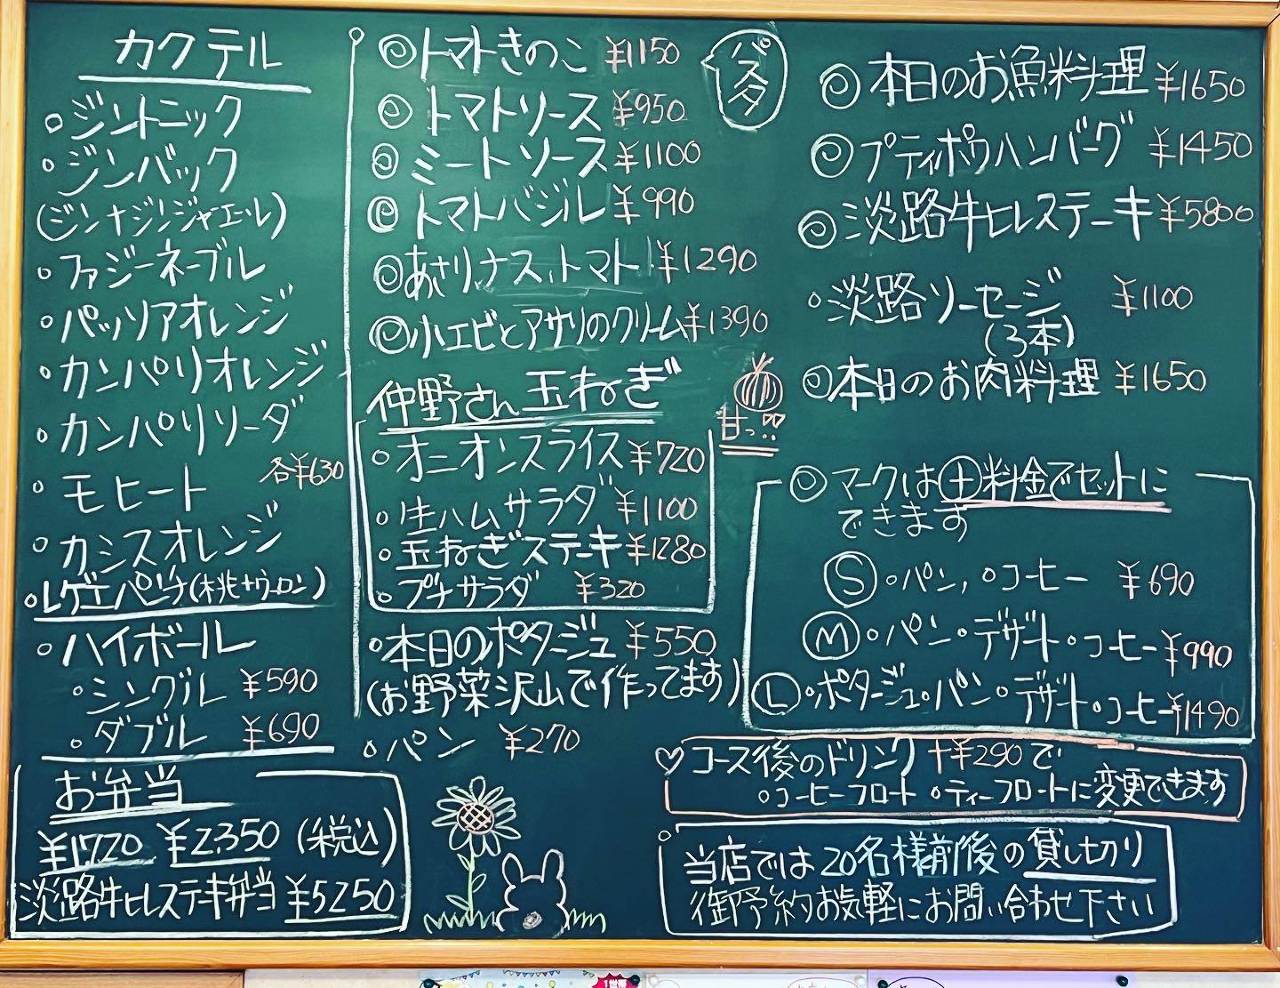 カクテル
・ジントニック
・ジンバック
(ジンナジンジャエール)
・ファジーネーブル
・パッソアオレンジ
・カンパリオレンジ
・カンパリソーダ
各¥630
・モヒート
・カシスオレンジ
・レゲエパンチ(桃ナウーロン)
・ハイボール
・シングル ¥590
・ダブル ¥690
お弁当
¥1,720 ¥2,350 (税込)
淡路牛ヒレステーキ弁当 ¥5250
パスタ
◎トマトきのこ ¥1150
◎トマトソース ¥950
◎ミートソース ¥1100
◎トマトバジル ¥990
◎あさり、ナス、トマト ¥1290
◎小エビとアサリのクリーム ¥1390
仲野さん玉ねぎ
甘っ!!
・オニオンスライス ¥720
・生ハムサラダ ¥1100
・玉ねぎステーキ ¥1280
・プチサラダ ¥320
・本日のポタージュ ¥550
(お野菜沢山で作ってます)
・パン ¥270
◎本日のお魚料理 ¥1650
◎プティポウハンバーグ ¥1450
◎淡路牛ヒレステーキ ¥5800
・淡路ソーセージ ¥1100
(3本)
◎本日のお肉料理 ¥1650
◎マークは⊕料金でセットに
できます
Ⓢ・パン,・コーヒー ¥690
Ⓜ・パン・デザート・コーヒー ¥990
Ⓛ・ポタージュ・パン・デザート・コーヒー ¥1490
♡コース後のドリンク +¥290で
・コーヒーフロート ・ティーフロートに変更できます
当店では20名様前後の貸し切り
御予約お気軽にお問い合わせ下さい